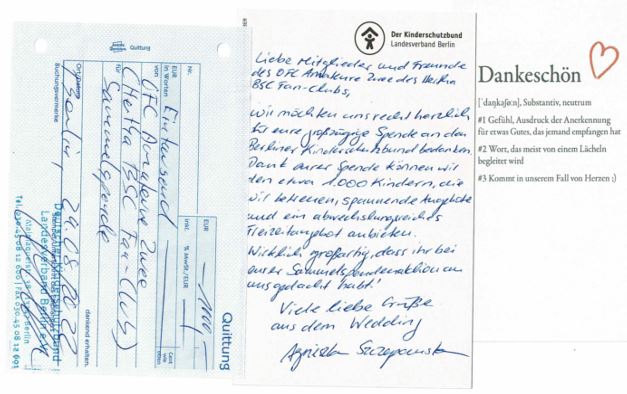 Quittung
Nr.
EUR
1000,-
inkl. % MwSt./EUR
EUR in Worten
Eintausend
Cent wie oben
von
OFC Amateure Zwee
(Hertha BSC Fan-Club)
für
Sammelspende
dankend erhalten.
Ort/Datum
Berlin,
Buchungsvermerke
Landesverband Berlin e.V.
Quittung
Der Kinderschutzbund
Landesverband Berlin
Liebe Mitglieder und Freunde
des OFC Amateure Zwee des Hertha
BSC Fan-Clubs,
wir möchten uns recht herzlich
für eure großzügige Spende an den
Berliner Kinderschutzbund bedanken.
Dank eurer Spende können wir
den etwa 1.000 Kindern, die
wir betreuen, spannende Angebote
und ein abwechslungsreiches
Freizeitangebot anbieten.
Wirklich großartig, dass ihr bei
eurer Sammelspendenaktion an
uns gedacht habt!
Viele liebe Grüße
aus dem Wedding
Agnieszka Szczepanska
Dankeschön
[ˈdaŋkəʃøːn], Substantiv, neutrum
#1 Gefühl, Ausdruck der Anerkennung
für etwas Gutes, das jemand empfangen hat
#2 Wort, das meist von einem Lächeln
begleitet wird
#3 Kommt in unserem Fall von Herzen ;)